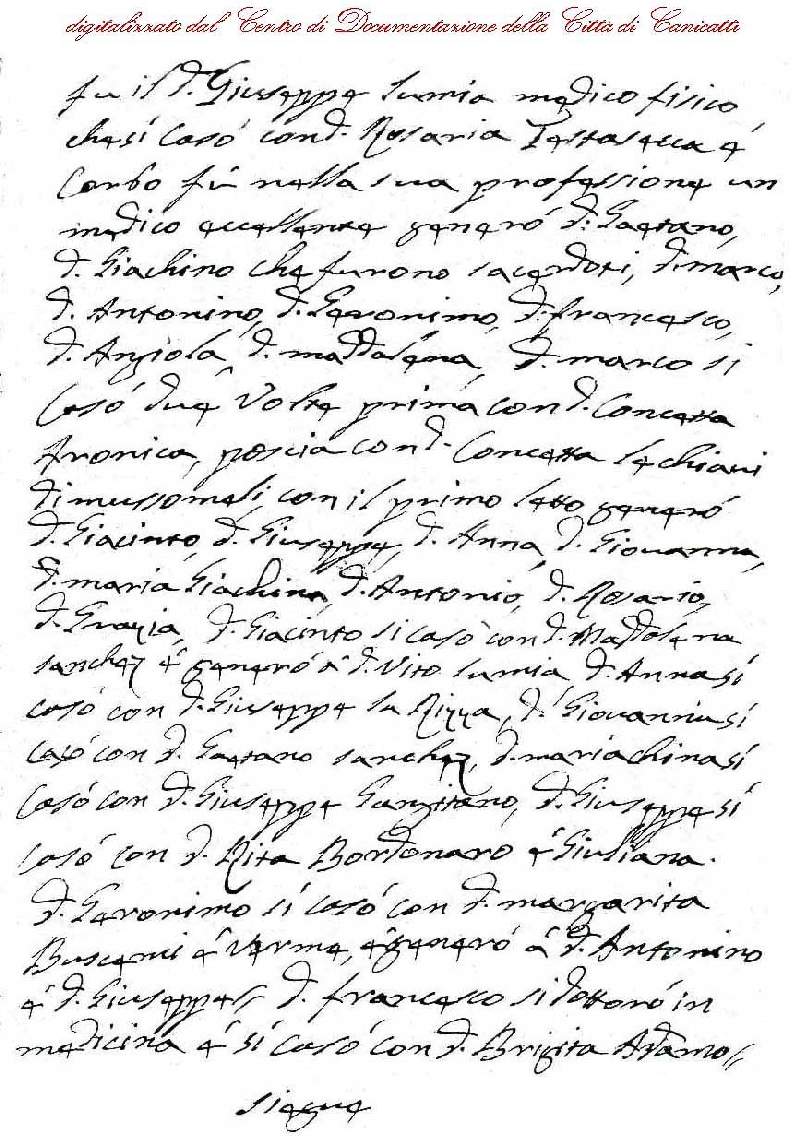 digitalizzato dal Centro di Documentazione della Città di Canicattì
fu il d. Giuseppe lumia medico fisico
che si casò con d. Rosaria Testasecca é
Corbo fú nella sua professione un
medico eccellente generó d. Gaetano,
d. Giachino che furono sacerdoti, d. marco,
d. Antonino, d. Geronimo, d. francesco,
d. Angiola, d. maddalena, d. marco si
Casó due Volte prima con d. Concetta
Aronica, poscia con d. Concetta le chiavi
di mussomeli, con il primo letto generó
d. Giacinto, d. Giuseppe, d. Anna, d. Giovanna,
d. maria Giachina, d. Antonio, d. Rosario,
d. Grazia, d. Giacinto si casò con d. Maddalena
sanchez é generó á d. Vito lumia d. Anna sí
casó con d. Giuseppe la Rizza, d. Giovannia sí
casó con d. Gaetano sanchez, d. mariachina sí
Casó con d. Giuseppe Gangitano, d. Giuseppe sí
casó con d. Rita Bordonaro é Giuliana.
d. Geronimo sí casó con d. margarita
Buscemi é Verme, é generó á d. Antonino
é d. Giuseppe// d. francesco si dottoró in
medicina é sí casó con d. Brigita Adamo//
siegue